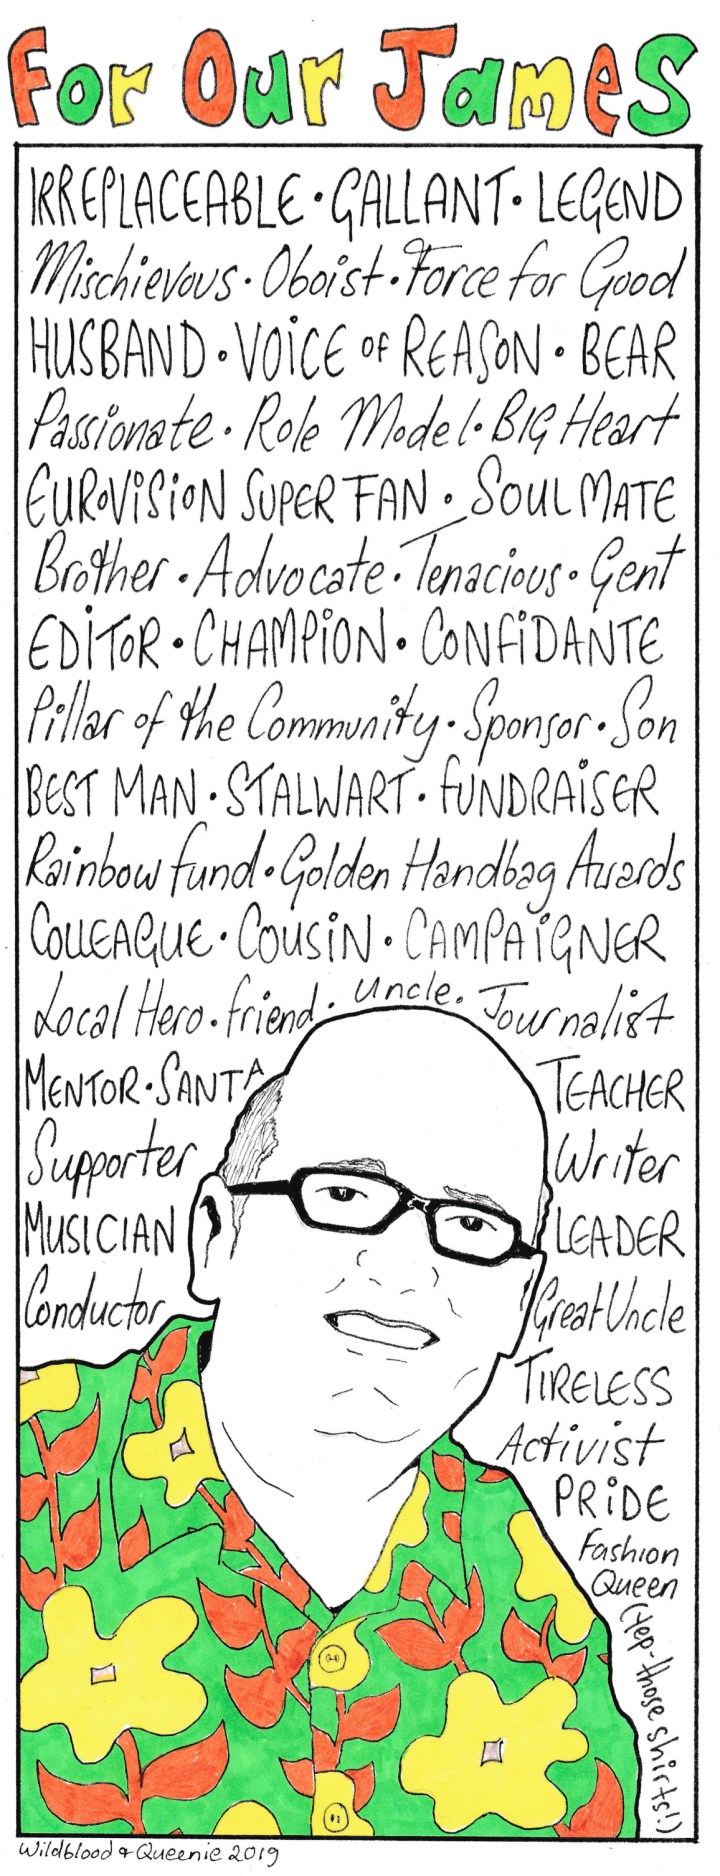 For Our James
IRREPLACEABLE • GALLANT • LEGEND
Mischievous • Oboist • Force for Good
HUSBAND • VOiCE OF REASON • BEAR
Passionate • Role Model • BIG Heart
EUROViSiON SUPER FAN • SOUL MATE
Brother • Advocate • Tenacious • Gent
EDiTOR • CHAMPiON • CONFiDANTE
Pillar of the Community • Sponsor • Son
BEST MAN • STALWART • FUNDRAiSER
Rainbow Fund • Golden Handbag Awards
COLLEAGUE • COUSiN • CAMPAiGNER
Local Hero • friend • Uncle • Journalist
MENTOR • SANTA TEACHER
Supporter Writer
MUSICIAN LEADER
Conductor Great Uncle
TIRELESS
Activist
PRiDE
Fashion
Queen
(Yep-those shirts!)
Wildblood + Queenie 2019